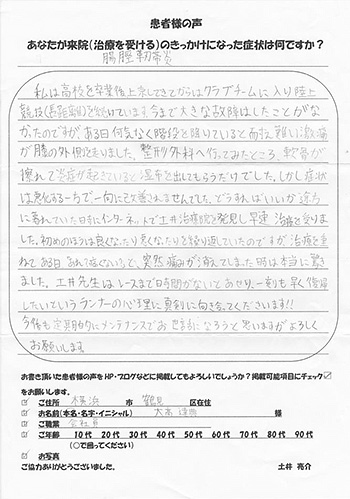 患者様の声
あなたが来院(治療を受ける)のきっかけになった症状は何ですか?
腸脛靭帯炎
私は高校を卒業後上京してきてからはクラブチームに入り陸上
競技(長距離)を続けています。今まで大きな故障はしたことがな
かったのですが、ある日何気なく階段を降りていると耐え難い激痛
が膝の外側に走りました。整形外科へ行ってみたところ、軟骨が
擦れて炎症が起きていると湿布を出してもらうだけでした。しかし症状
は悪化する一方で一向に改善されませんでした。どうすればいいか途方
に暮れていた時にインターネットで土井治療院を発見し早速治療を受けま
した。初めのほうは良くなったり悪くなったりを繰り返していたのですが治療を重
ねてある日あれ?痛くないぞと、突然痛みが消えてしまった時は本当に驚き
ました。土井先生はレースまで時間がないとあせり、一刻も早く復帰
したいというランナーの心理に真剣に向き合ってくださいます!!
今後も定期的にメンテナンスでお世話になろうと思いますがよろしく
お願いします。
お書き頂いた患者様の声をHP・ブログなどに掲載してもよろしいでしょうか?掲載可能項目にチェック☑
をお願いします。
☑ ご住所 横浜 市 鶴見 区在住
☑ お名前(本名・名字・イニシャル) 様
☑ ご職業 会社員
☑ ご年齢 10代 20代 30代 40代 50代 60代 70代 80代 90代
(○で囲ってください)
☑ お写真
ご協力ありがとうございました。 土井 亮介